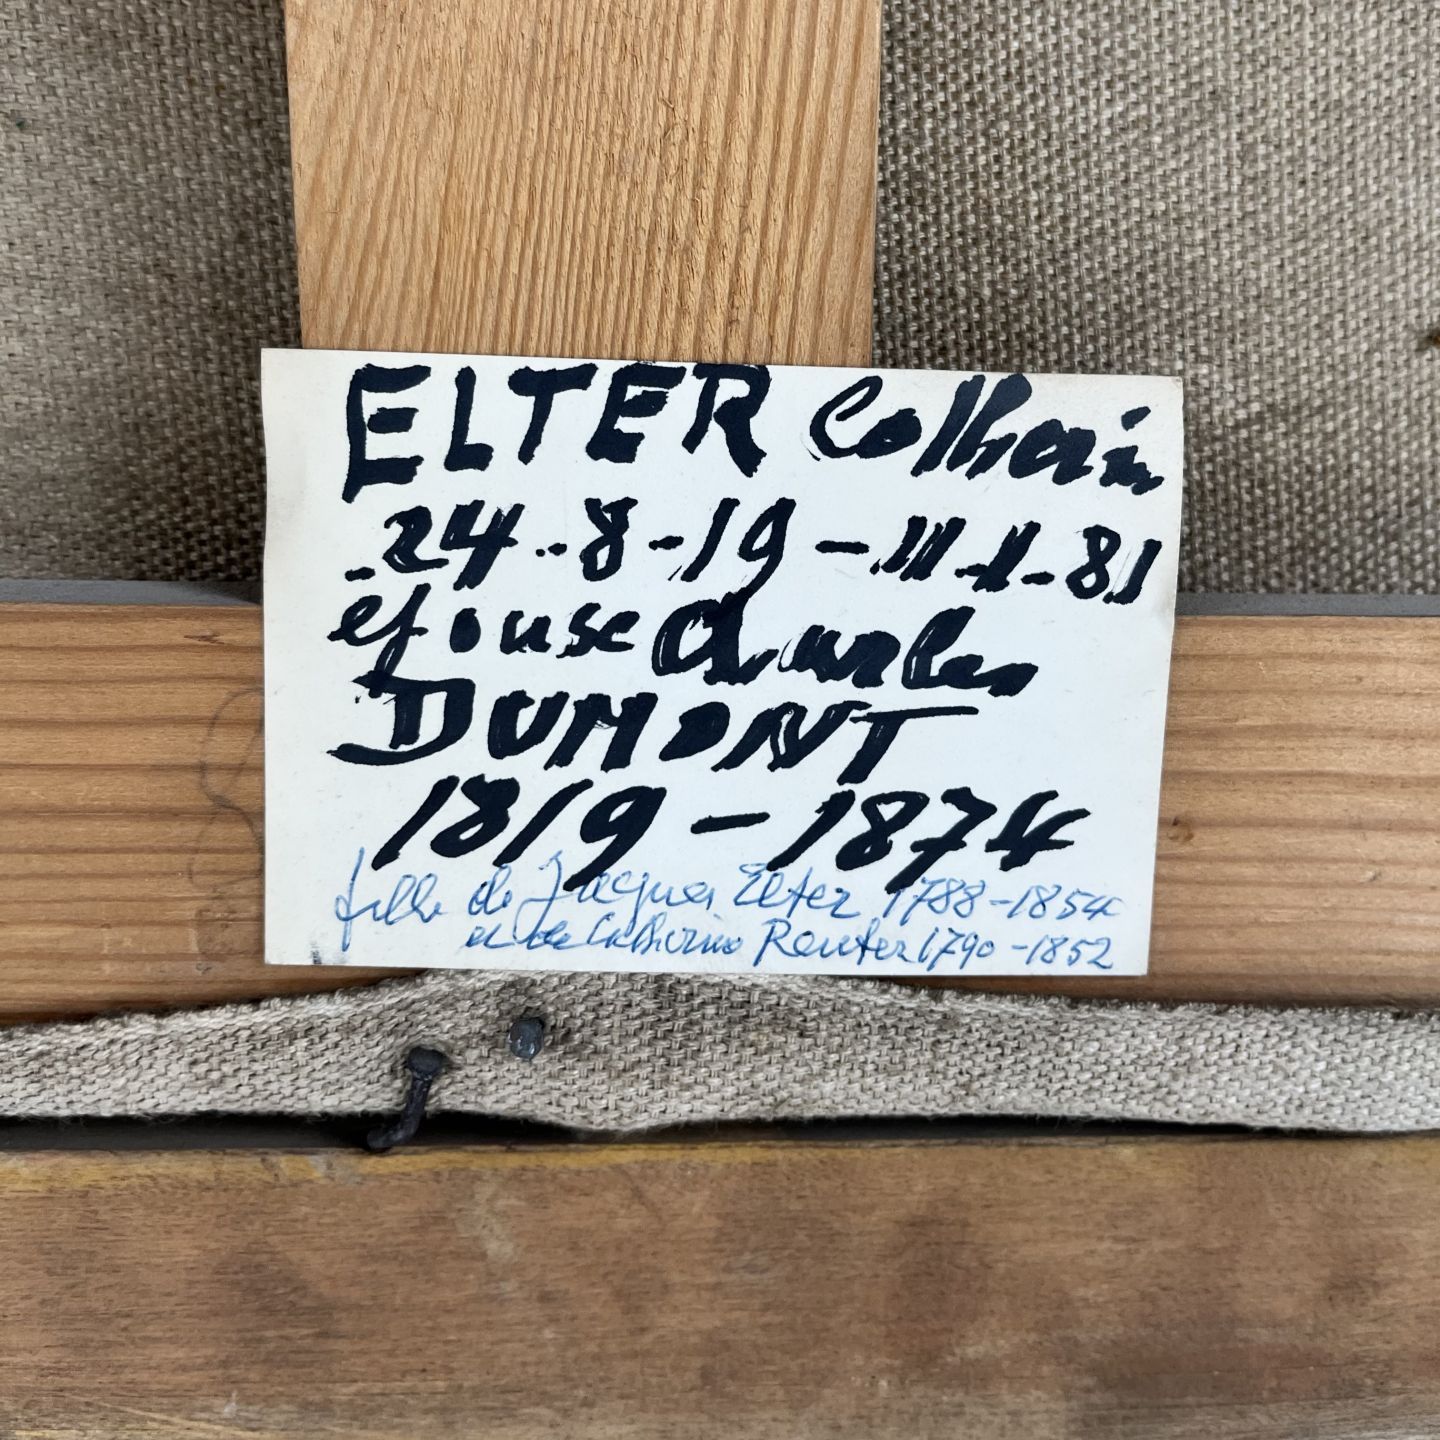 ELTER Catherin
24-8-19 - 11-1-81
épouse Charles
DUMONT
1819 - 1874
fille de Jacques Elter 1788-1854
et de Catherine Reuter 1790-1852